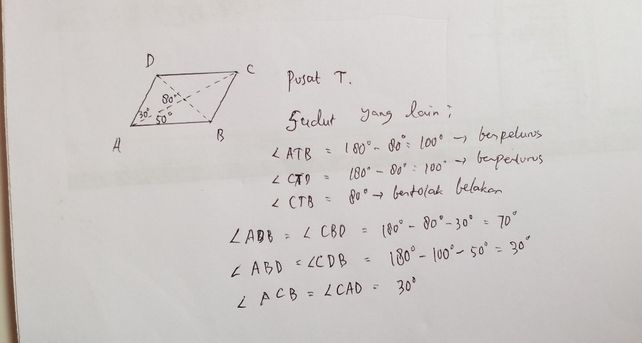 D
C
80°
30°
50°
A
B
Pusat T.
Sudut yang lain:
∠ATB = 180° - 80° = 100° → berpelurus
∠CTD = 180° - 80° = 100° → berpelurus
∠CTB = 80° → bertolak belakan
∠ADB = ∠CBD = 180° - 80° - 30° = 70°
∠ABD = ∠CDB = 180° - 100° - 50° = 30°
∠ACB = ∠CAD = 30°